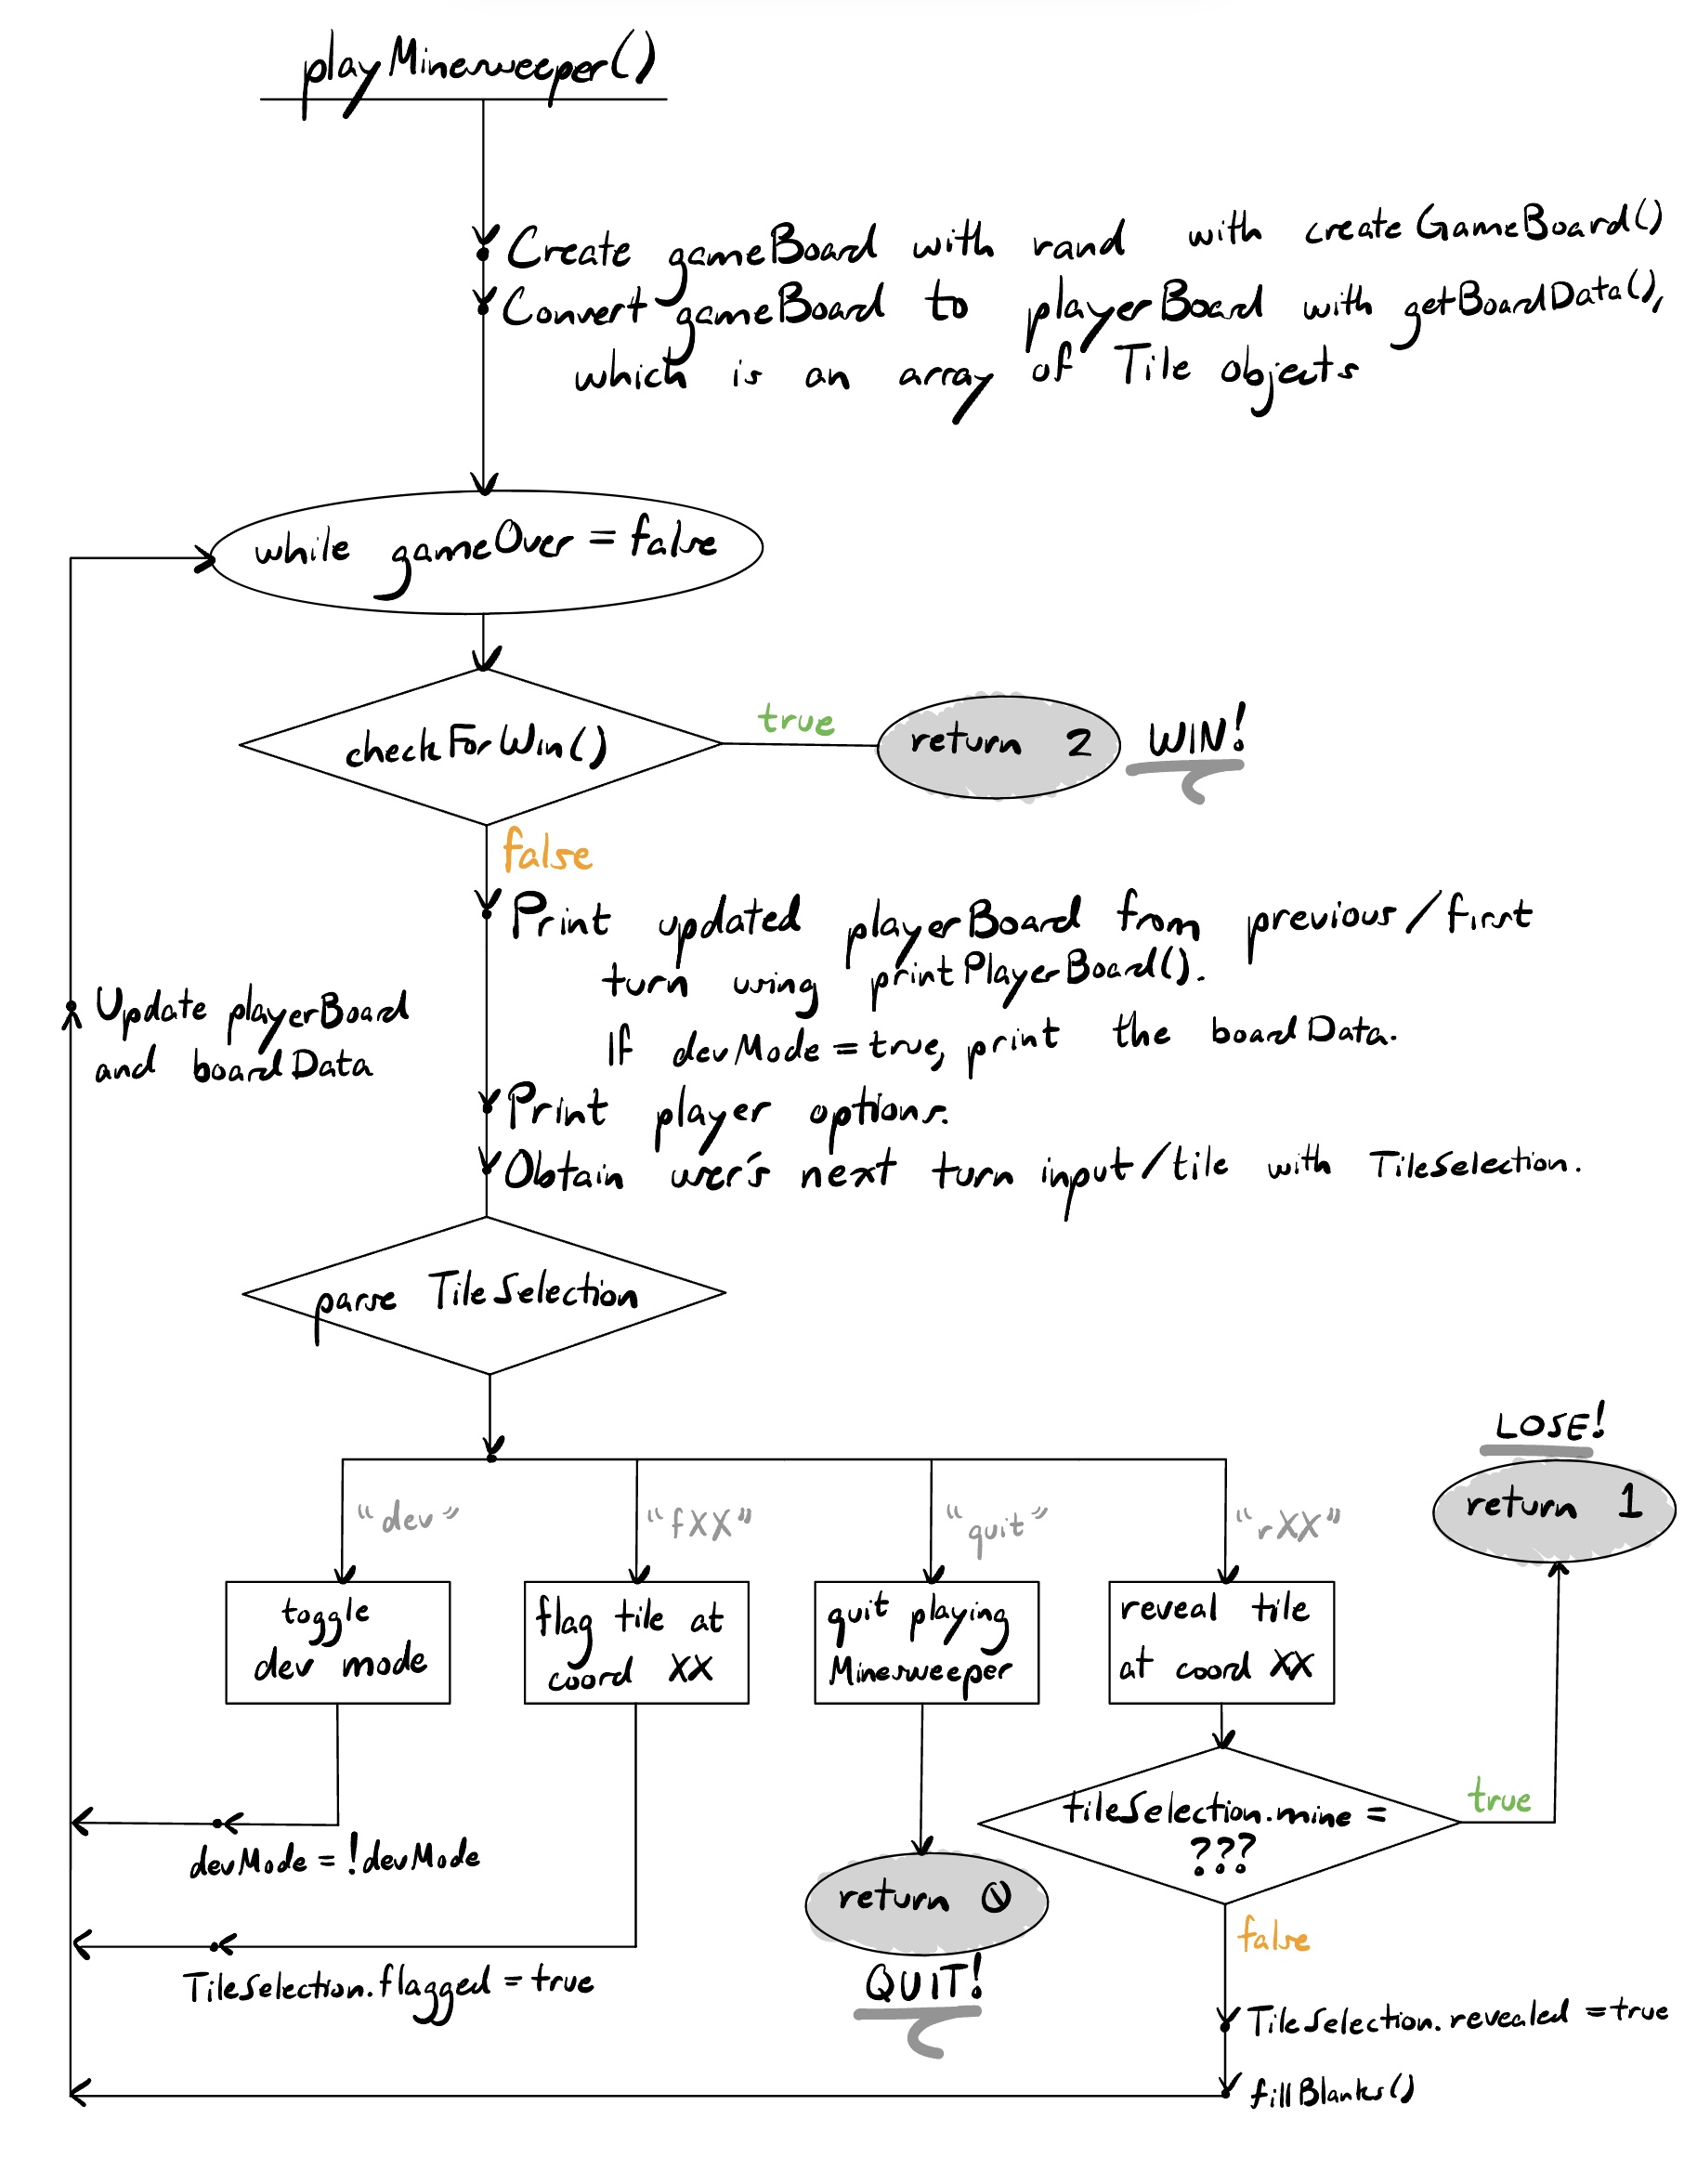 playMinesweeper()
Create gameBoard with rand with createGameBoard()
Convert gameBoard to playerBoard with getBoardData(),
which is an array of Tile objects
while gameOver = false
checkForWin()
true
return 2
WIN!
false
Print updated playerBoard from previous/first
turn using printPlayerBoard().
If devMode = true, print the boardData.
Update playerBoard
and boardData
Print player options.
Obtain user's next turn input/tile with TileSelection.
parse TileSelection
LOSE!
return 1
"dev"
"fXX"
"quit"
"rXX"
toggle
dev mode
flag tile at
coord XX
quit playing
Minesweeper
reveal tile
at coord XX
tileSelection.mine =
???
true
devMode = !devMode
return 0
QUIT!
false
TileSelection.flagged = true
TileSelection.revealed = true
fillBlanks()